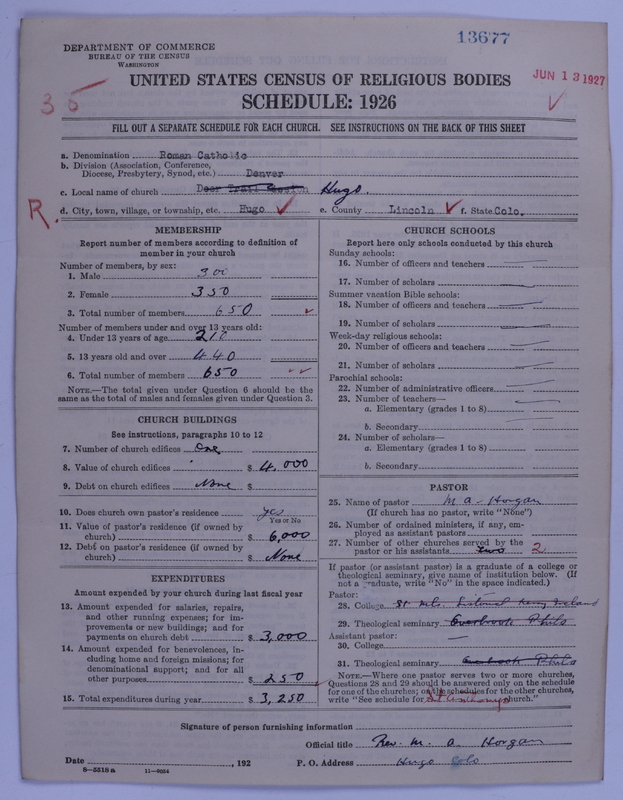 13677
DEPARTMENT OF COMMERCE
BUREAU OF THE CENSUS
WASHINGTON
JUN 13 1927
UNITED STATES CENSUS OF RELIGIOUS BODIES
SCHEDULE: 1926
35
FILL OUT A SEPARATE SCHEDULE FOR EACH CHURCH. SEE INSTRUCTIONS ON THE BACK OF THIS SHEET
a. Denomination Roman Catholic
b. Division (Association, Conference,
Diocese, Presbytery, Synod, etc.) Denver
c. Local name of church Hugo.
R. d. City, town, village, or township, etc. Hugo e. County Lincoln f. State Colo.
MEMBERSHIP
Report number of members according to definition of
member in your church
Number of members, by sex:
1. Male 300
2. Female 350
3. Total number of members 650
Number of members under and over 13 years old:
4. Under 13 years of age 210
5. 13 years old and over 440
6. Total number of members 650
NOTE.—The total given under Question 6 should be the
same as the total of males and females given under Question 3.
CHURCH BUILDINGS
See instructions, paragraphs 10 to 12
7. Number of church edifices One
8. Value of church edifices $ 4,000
9. Debt on church edifices None $
10. Does church own pastor's residence? yes
Yes or No
11. Value of pastor's residence (if owned by
church) $ 6,000
12. Debt on pastor's residence (if owned by
church) $ None
EXPENDITURES
Amount expended by your church during last fiscal year
13. Amount expended for salaries, repairs,
and other running expenses; for im-
provements or new buildings; and for
payments on church debt $ 3,000
14. Amount expended for benevolences, in-
cluding home and foreign missions; for
denominational support; and for all
other purposes $ 250
15. Total expenditures during year $ 3,250
CHURCH SCHOOLS
Report here only schools conducted by this church
Sunday schools:
16. Number of officers and teachers
17. Number of scholars
Summer vacation Bible schools:
18. Number of officers and teachers
19. Number of scholars
Week-day religious schools:
20. Number of officers and teachers
21. Number of scholars
Parochial schools:
22. Number of administrative officers
23. Number of teachers—
a. Elementary (grades 1 to 8)
b. Secondary
24. Number of scholars—
a. Elementary (grades 1 to 8)
b. Secondary
PASTOR
25. Name of pastor M a Horgan
(If church has no pastor, write "None")
26. Number of ordained ministers, if any, em-
ployed as assistant pastors
27. Number of other churches served by the
pastor or his assistants two 2
If pastor (or assistant pastor) is a graduate of a college or
theological seminary, give name of institution below. (If
not a graduate, write "No" in the space indicated.)
Pastor:
28. College St Ireland
29. Theological seminary Overbrook Phila
Assistant pastor:
30. College
31. Theological seminary Overbrook Phila
NOTE.—Where one pastor serves two or more churches,
Questions 28 and 29 should be answered only on the schedule
for one of the churches; on the schedules for the other churches,
write "See schedule for St Anthonys church."
Signature of person furnishing information
Official title Rev. M. a Horgan
Date , 192 P. O. Address Hugo Colo
8—5518a 11—9054